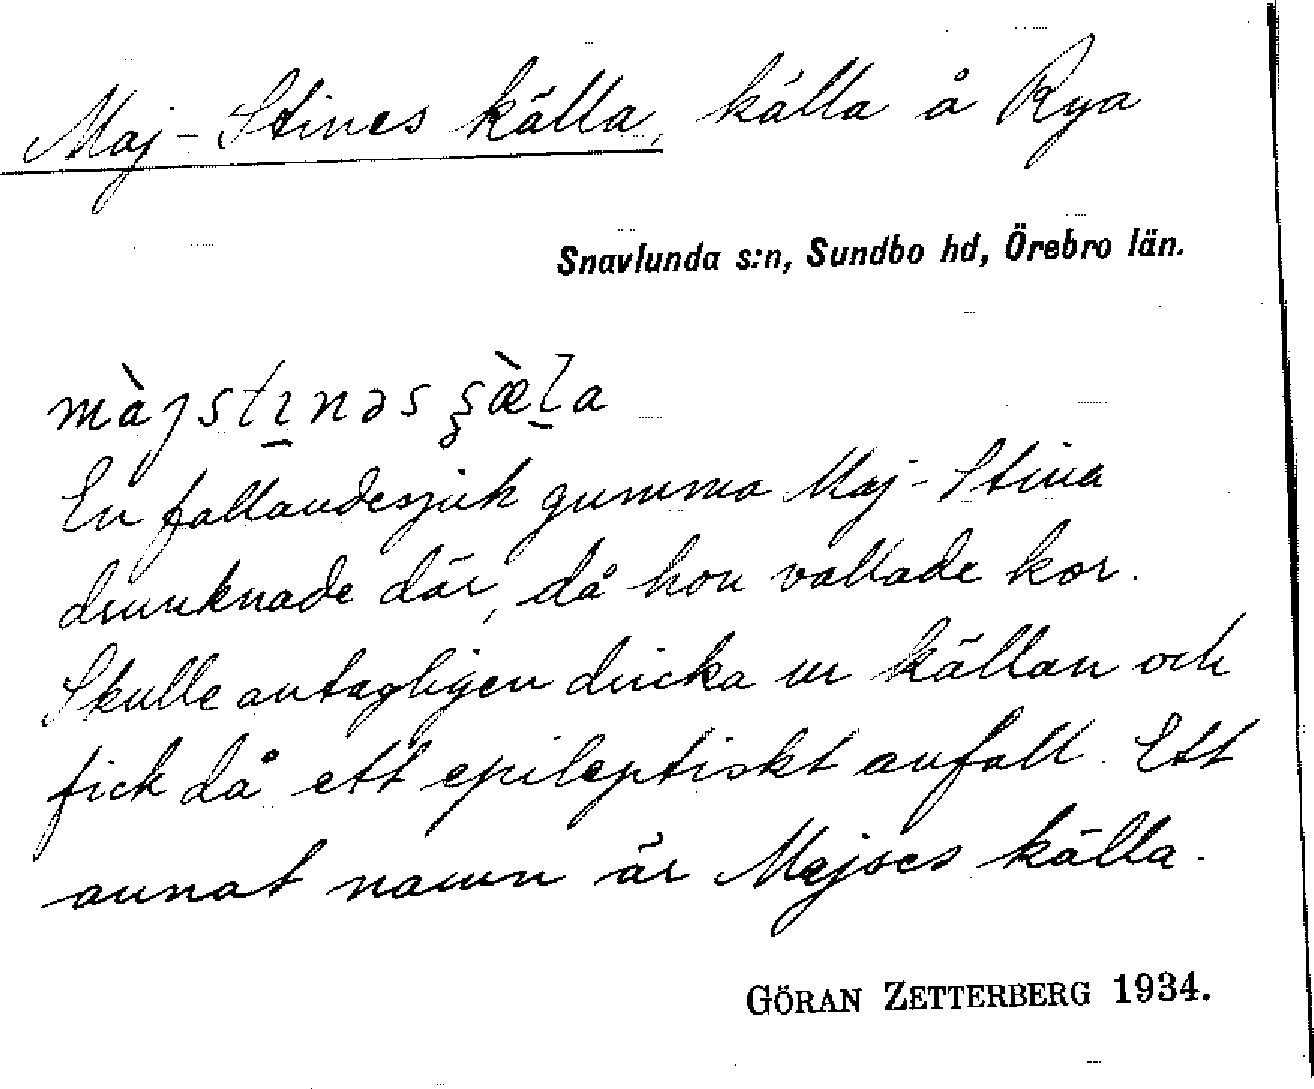 Maj-Stines källa, källa å Rya
Snavlunda s:n, Sundbo hd, Örebro län.
màjstɪ̲nəs ʂæ̀l̲a
En fallandesjuk gumma Maj-Stina
drunknade där, då hon vallade kor.
Skulle antagligen dricka ur källan och
fick då ett epileptiskt anfall. Ett
annat namn är Majses källa.
GÖRAN ZETTERBERG 1934.